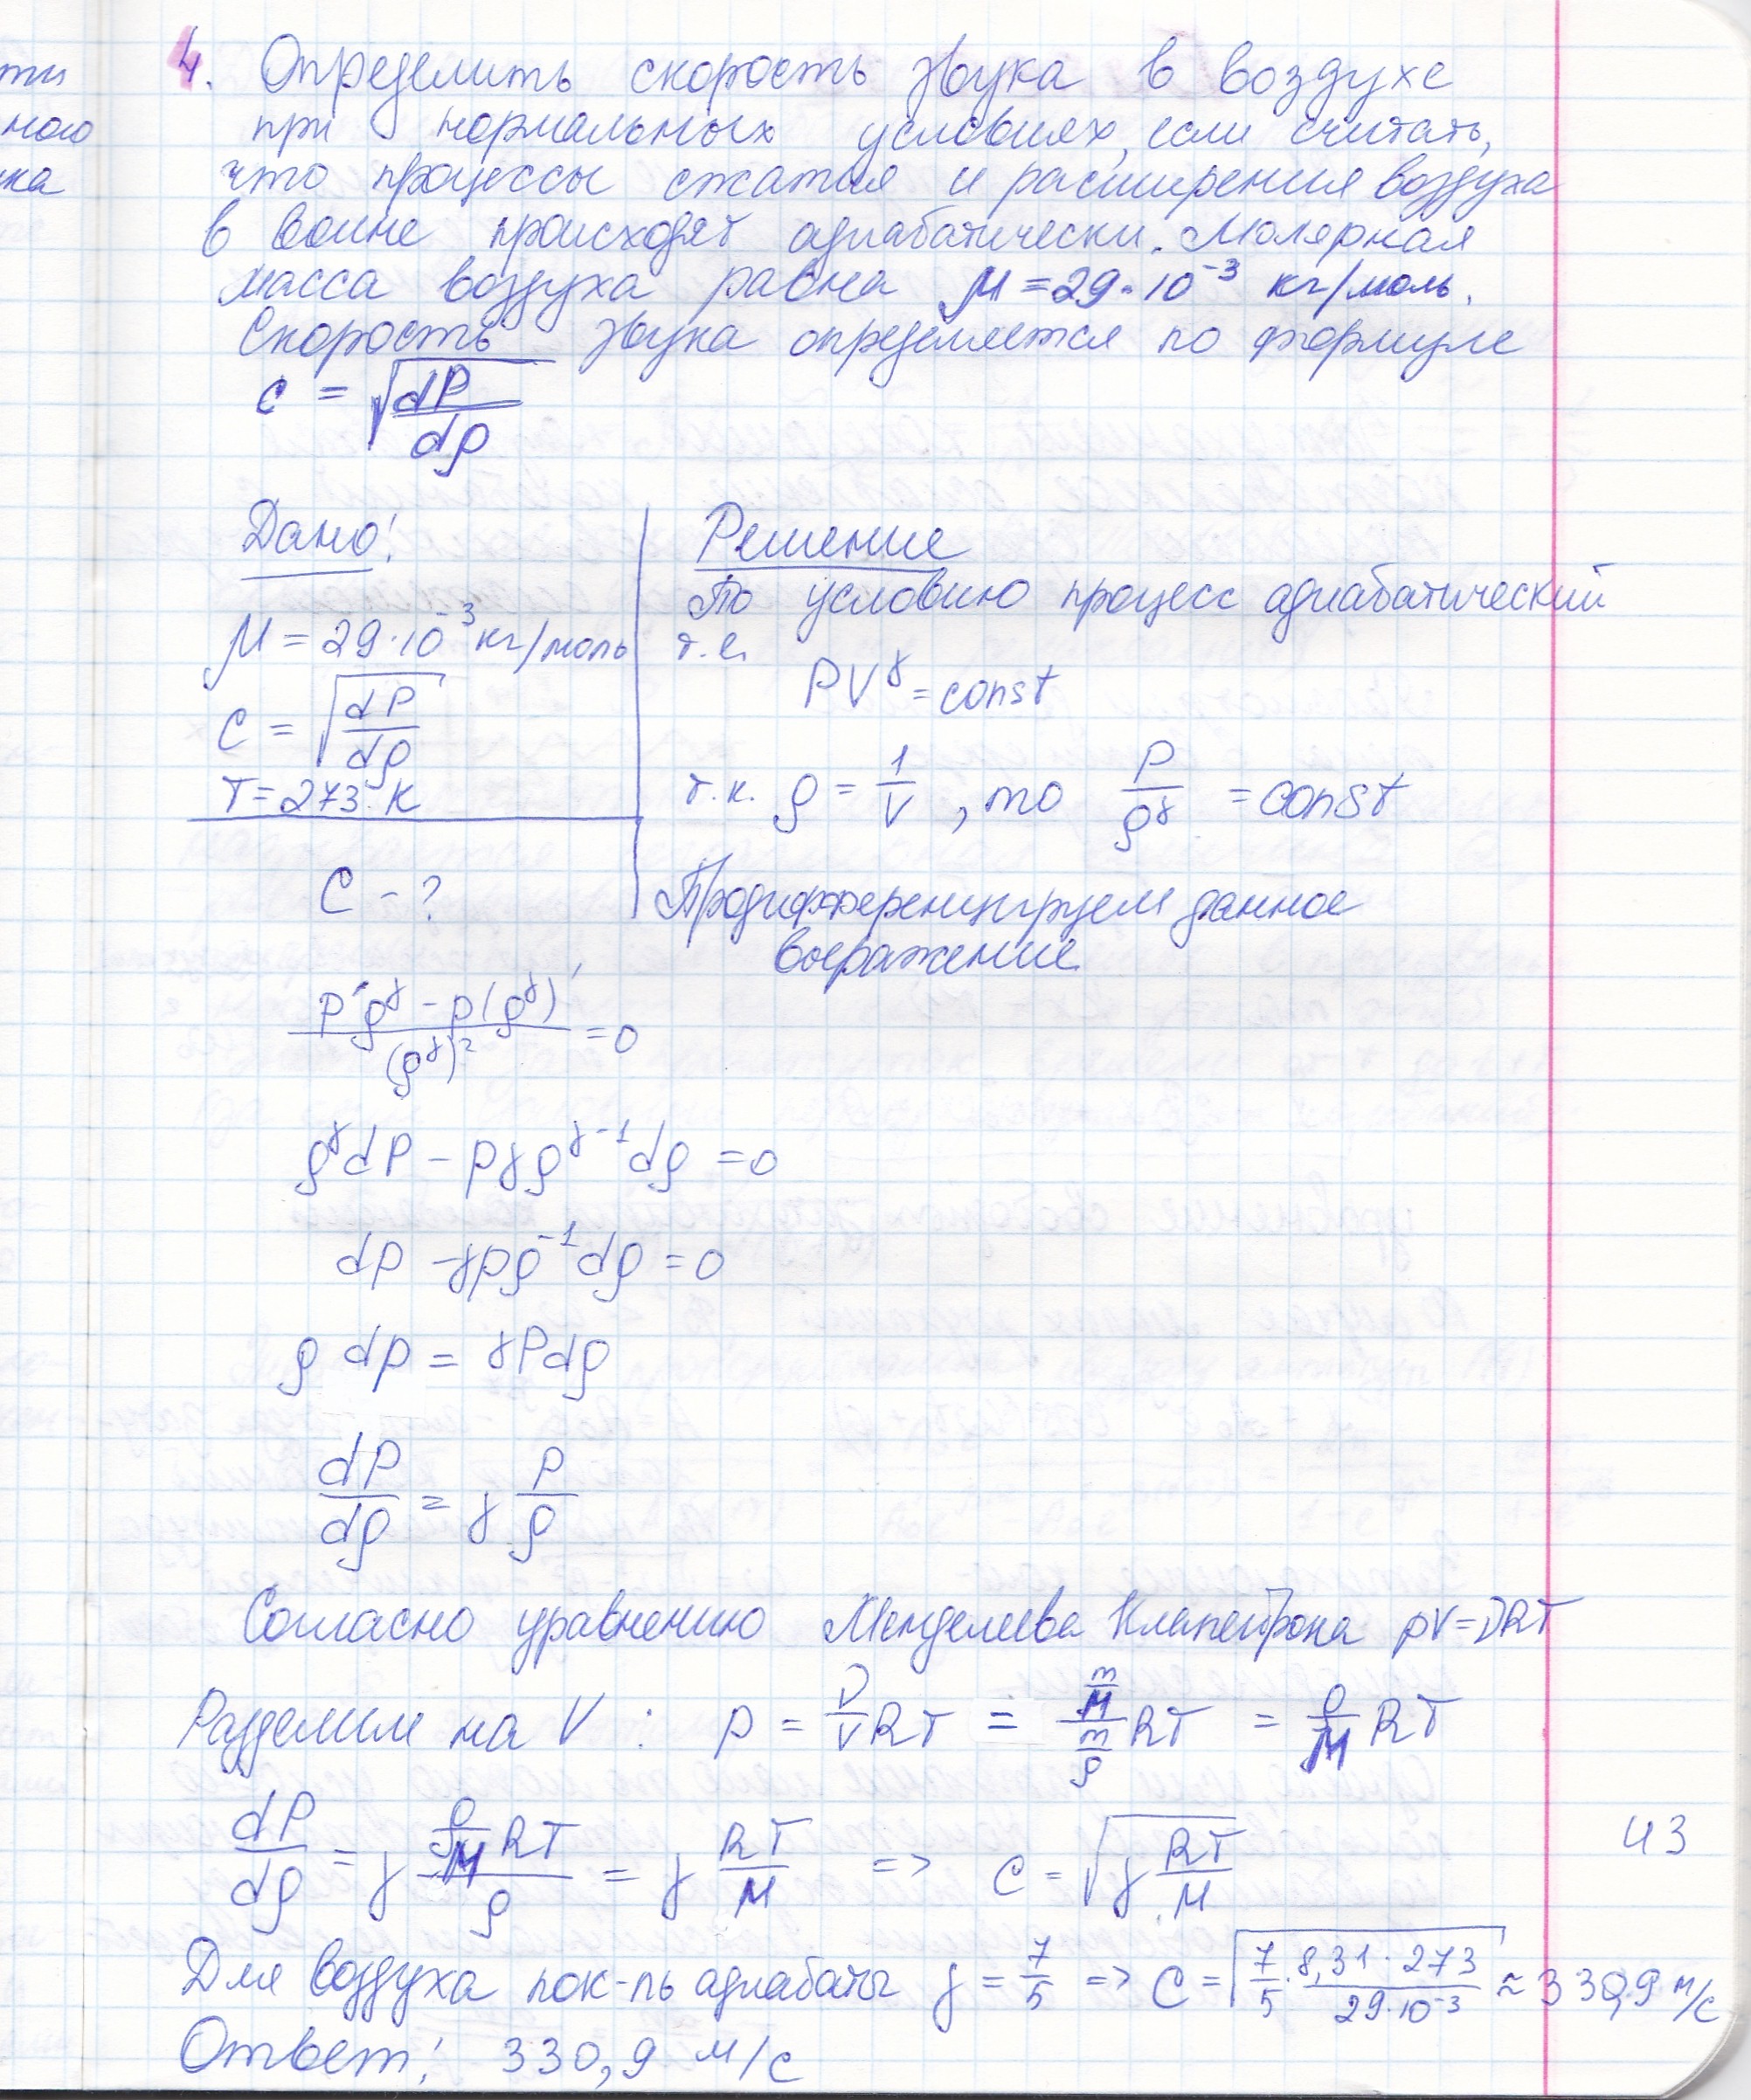 ти
ного
ка
4. Определить скорость звука в воздухе
при нормальных условиях, если считать,
что процессы сжатия и расширения воздуха
в волне происходят адиабатически. Молярная
масса воздуха равна μ = 29·10⁻³ кг/моль.
Скорость звука определяется по формуле
c = √(dP/dρ)
Дано:
μ = 29·10⁻³ кг/моль
c = √(dP/dρ)
T = 273 K
C - ?
Решение
По условию процесс адиабатический
т.е.
PV^γ = const
т.к. ρ = 1/V, то P/ρ^γ = const
Продифференцируем данное
выражение
(P'ρ^γ - p(ρ^γ)')/(ρ^γ)² = 0
ρ^γ dP - pγρ^(γ-1) dρ = 0
dp - γpρ⁻¹dρ = 0
ρ dp = γPdρ
dP/dρ = γ P/ρ
Согласно уравнению Менделеева Клапейрона pV = νRT
Разделим на V : p = ν/V RT = (m/M)/(m/ρ) RT = ρ/M RT
dP/dρ = γ (ρ/M RT)/ρ = γ RT/M => c = √(γ RT/M)
43
Для воздуха пок-ль адиабаты γ = 7/5 => C = √(7/5 · 8,31·273/29·10⁻³) ≈ 330,9 м/с
Ответ: 330,9 м/с